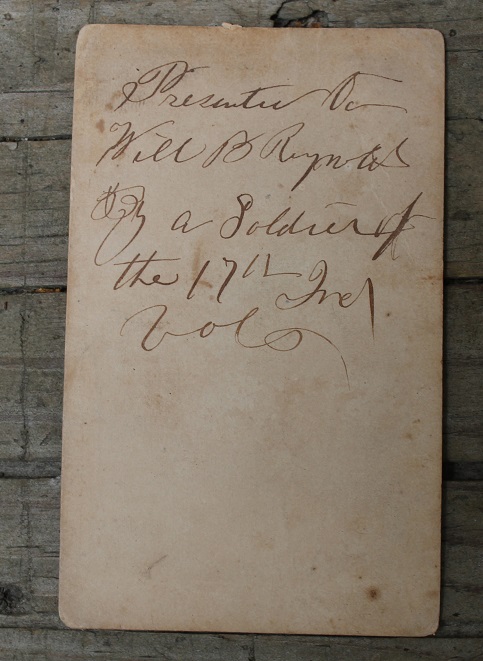 Presented To
Will B Reynolds
By a Soldier of
the 17th Ind
Vols